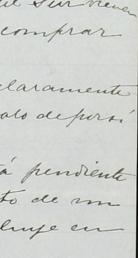 Sur
comprar
claramente
de por sí
pendiente
to de un
luye en